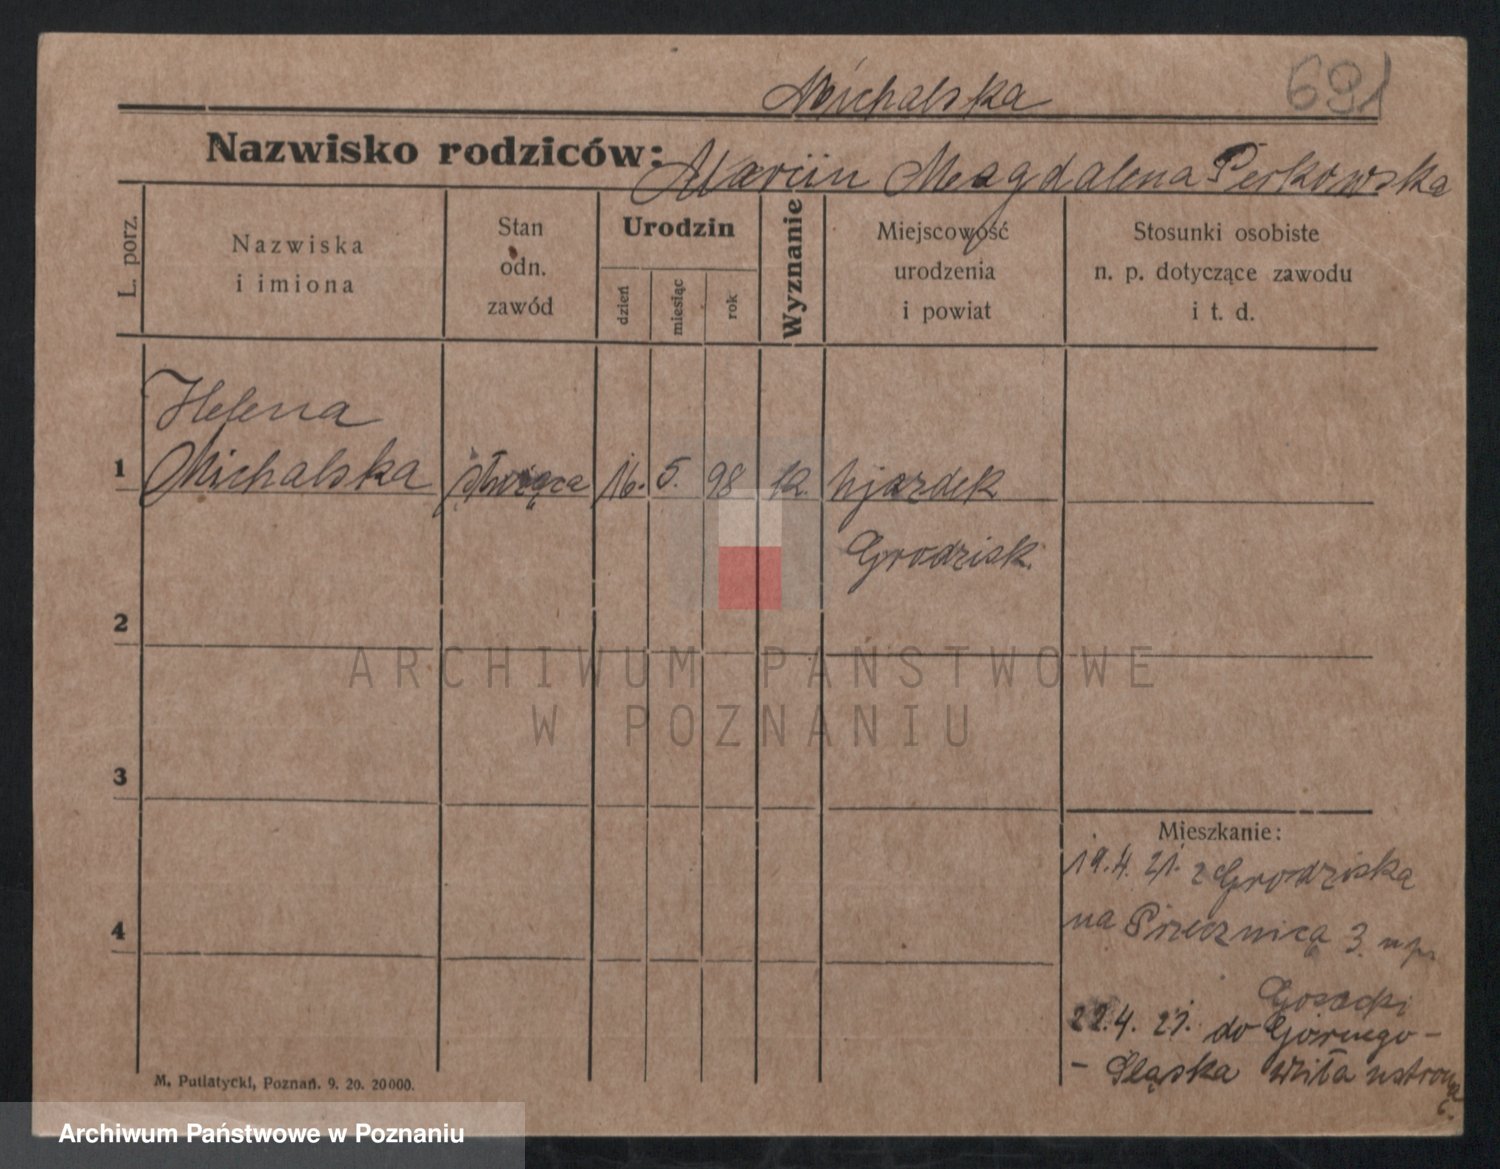 Michalska
691
Nazwisko rodziców: Marcin Magdalena Perkowska
L. porz.
Nazwiska
i imiona
Stan
odn.
zawód
Urodzin
dzień
miesiąc
rok
Wyznanie
Miejscowość
urodzenia
i powiat
Stosunki osobiste
n. p. dotyczące zawodu
i t. d.
Helena
1 Michalska służąca 16. 5. 98 k. Ujazdek
Grodzisk.
2
ARCHIWUM PAŃSTWOWE
W POZNANIU
3
Mieszkanie:
19.4.21. z Grodziska
4
na Przecznicą 3.
22.4.21. do Górnego-
- Śląska
M. Putiatycki, Poznań. 9. 20. 20000.
Archiwum Państwowe w Poznaniu